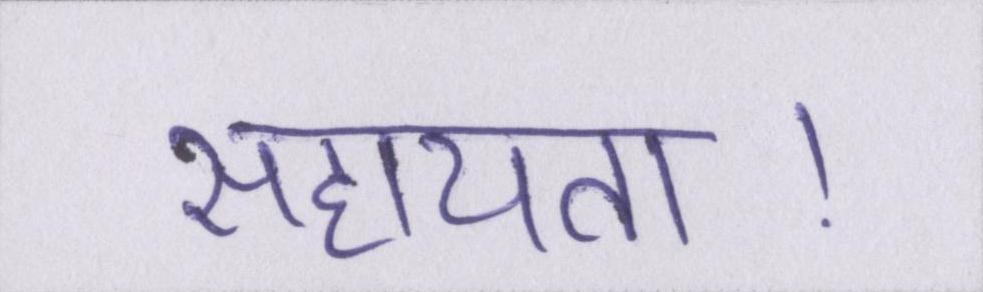 सहायता !